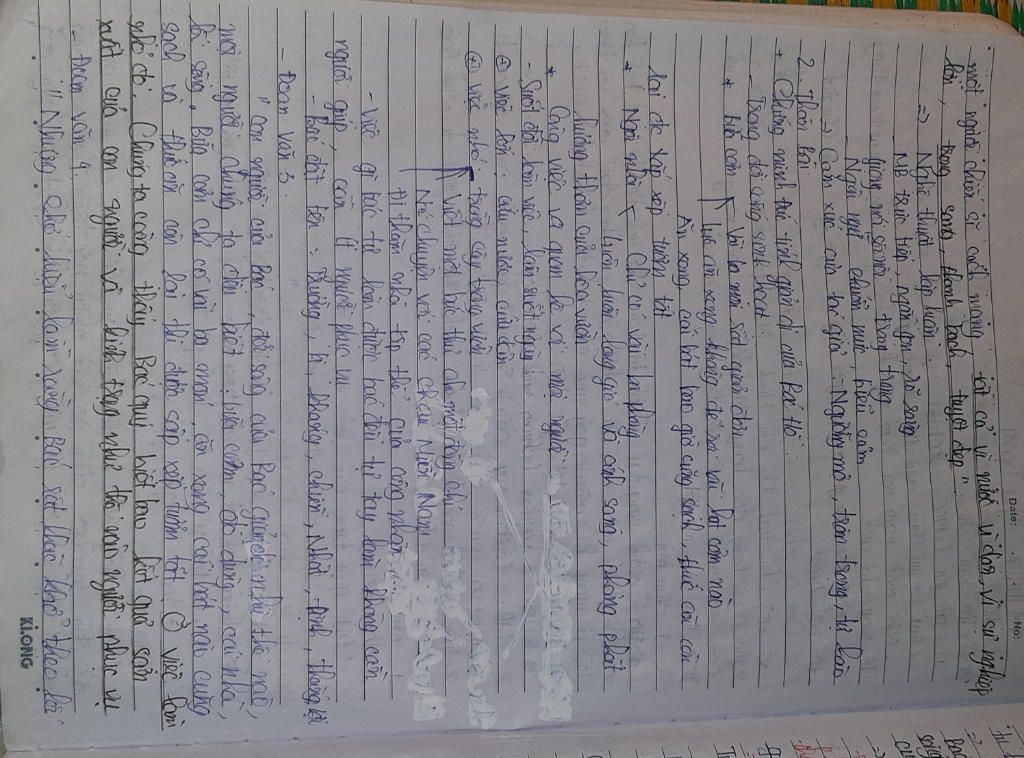 Date:
No:
một người chiến sĩ cách mạng tất cả vì nước vì dân, vì sự nghiệp
lớn, trong sáng, thanh bạch, tuyệt đẹp"
=> Nghệ thuật lập luận:
NB trực tiếp, ngắn gọn, rõ ràng
Ngôn ngữ chuẩn mực, biểu cảm
=> Cảm xúc của tác giả - Ngưỡng mộ, trân trọng, tự hào
2. Thân bài
+ Chứng minh thứ tính giản dị của Bác Hồ:
- Trong đời sống sinh hoạt
* bữa cơm Vài ba món rất giản đơn
lúc ăn xong không để rơi vãi hạt cơm nào
Ăn xong, cái bát bao giờ cũng sạch, thức ăn còn
lại đc sắp xếp tươm tất
* Ngôi nhà Chỉ có vài ba phòng
luôn luôn lộng gió và ánh sáng, phảng phất
hương thơm của hoa vườn
* Công việc và quan hệ với mọi người
- Suốt đời làm việc, làm suốt ngày
+ việc lớn: cứu nước, cứu dân
+ việc nhỏ: trồng cây trong vườn
Viết một bức thư cho một đồng chí
Nói chuyện với các cháu Miền Nam
Đi thăm nhà tập thể của công nhân
- Việc gì Bác tự làm được Bác đều tự tay làm không cần
người giúp, cần ít người phục vụ
- Bác đặt tên: Trường, Kì, Kháng, Chiến, Nhất, Định, Thắng, Lợi
- Đoạn văn 3.
"Con người của Bác, đời sống của Bác giản dị như thế nào,
mọi người chúng ta đều biết: bữa cơm, đồ dùng, cái nhà,
lối sống. Bữa cơm chỉ có vài ba món, ăn xong cái bát nào cũng
sạch và thức ăn còn lại thì được sắp xếp tươm tất. Ở việc làm
nhỏ đó, Chúng ta càng thấy Bác quý biết bao kết quả sản
xuất của con người và kính trọng như thế nào người phục vụ
- Đoạn văn 4.
"Nhưng chớ hiểu lầm rằng Bác sống khắc khổ theo lối
KLONG